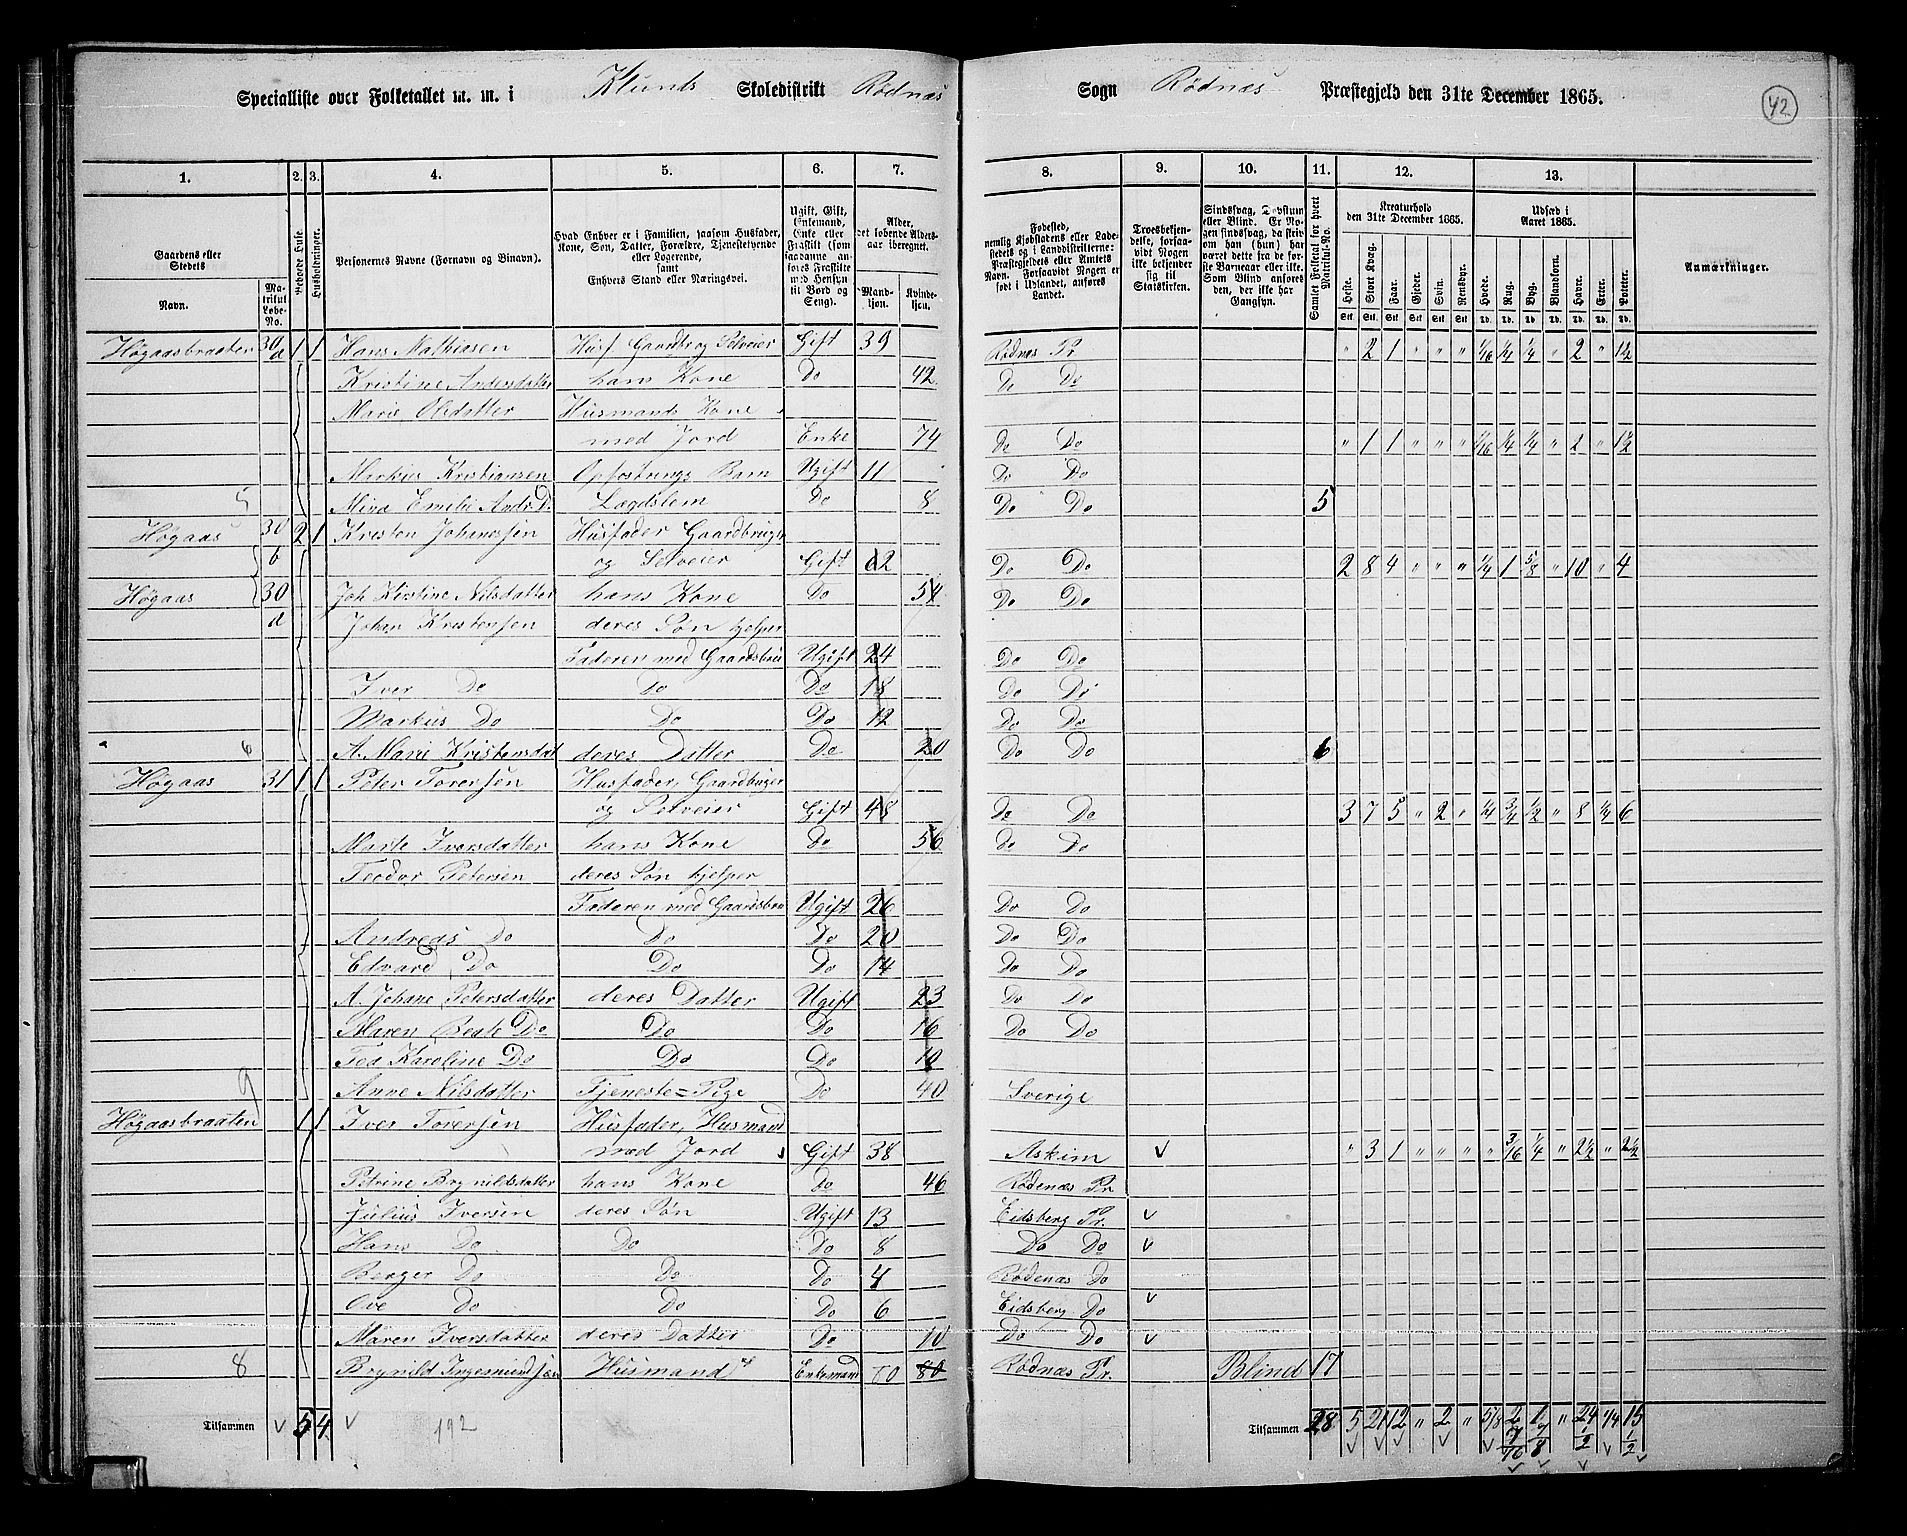 Specialliste over Folketallet m. m. i Klunds Skoledistrikt Rødnæs Sogn Rødnæs Præstegjeld den 31te December 1865.
42
1. 2. 3. 4. 5. 6. 7. 8. 9. 10. 11. 12. 13.
Gaardens eller Stedets
Navn. Matrikul Løbe-No.
Beboede Huse.
Husholdninger.
Personernes Navne (Fornavn og Binavn).
Hvad Enhver er i Familien, saasom Husfader, Kone, Søn, Datter, Forældre, Tjenestetyende eller Logerende, samt Enhvers Stand eller Næringsvei.
Ugift, Gift, Enkemand, Enke eller Fraskilt (som saadanne anføres Fraskilte med Hensyn til Bord og Seng).
Alder, det løbende Alders-aar iberegnet.
Mandkjøn. Kvindekjøn.
Fødested, nemlig Kjøbstadens eller Ladestedets og i Landdistrikterne: Præstegjeldets eller Amtets Navn. Forsaavidt Nogen er født i Udlandet, anføres Landet.
Troesbekjendelse, forsaavidt Nogen ikke bekjender sig til Statskirken.
Sindssvag, Døvstum eller Blind. Er Nogen sindssvag, da skrives om han (hun) har været dette fra første Barneaar eller ikke. Som Blind anføres den, der ikke har Gangsyn.
Samlet Folketal for hvert Matrikul-No.
Kreaturhold den 31te December 1865.
Heste. Stort Kvæg. Faar. Gjeder. Svin. Rensdyr.
Udsæd i Aaret 1865.
Hvede. Rug. Byg. Blandkorn. Havre. Erter. Poteter.
Anmærkninger.
Høgaasbraaten 30/a 1 1 Hans Mathiasen Husf. Gaardbr og Selveier Gift 39 Rødnæs Pr. " 2 1 " " " 1/16 1/4 1/4 " 2 " 1 1/2
Kristine Andersdatter hans Kone Do 42 Do Do
Marie Olsdatter Husmands Kone
med Jord Enke 74 Do Do " 1 1 " " " 1/16 1/4 1/4 " 2 " 1 1/2
Markus Kristiansen Opfostrings Barn Ugift 11 Do Do
5 Mina Emilie Andr.D. Lægdslem Do 8 Do Do 5
Høgaas 30 b 2 1 Kresten Johannesen Husfader Gaardbruger
og Selveier Gift 62 Do Do 2 8 4 " " " 1/4 1 5/8 " 10 " 4
Høgaas 30 a Joh Kirstine Nilsdatter hans Kone Do 54 Do Do
Johan Kristensen deres Søn hjelper
Faderen med Gaardsbru Ugift 24 Do Do
Iver Do Do Do 18 Do Do
Markus Do Do Do 12 Do Do
6 A. Marie Kristensdat deres Datter Do 20 Do Do 6
Høgaas 31 1 1 Peter Toversen Husfader, Gaardbruger
og Selveier Gift 48 Do Do 3 7 5 " 2 " 1/4 3/4 1/2 " 8 1/4 6
Marte Iversdatter hans Kone Do 56 Do Do
Teodor Petersen deres Søn hjelper
Faderen med Gaardsbru Ugift 26 Do Do
Andreas Do Do Do 20 Do Do
Edvard Do Do Do 14 Do Do
A. Johane Petersdatter deres Datter Ugift 23 Do Do
Maren Beate Do Do Do 16 Do Do
Tea Karoline Do Do Do 10
9 Anne Nilsdatter Tjeneste=Pige Do 40 Sverige
Høgaasbraaten 1 1 Iver Toversen Husfader, Husmand
med Jord Gift 38 Askim v " 3 1 " " " " 3/16 1/4 " 2 1/2 " 2 1/2
Petrine Brynildsdatter hans Kone Do 46 Rødenæs Pr.
Julius Iversen deres Søn Ugift 13 Eidsberg Pr. v
Hans Do Do Do 8 Do Do v
Berger Do Do Do 4 Rødenæs Do
Ove Do Do Do 6 Eidsberg Do v
Maren Iversdatter deres Datter Do 10 Do Do v
8 Brynild Ingemundsøn Husmand Enkemand 80 80 Rødnæs Pr. Blind 17
Tilsammen v 5 4 v 192 Tilsammen 28 5 21 12 " 2 " 5/8 2 7/16 1 7/8 " 24 1/2 1/4 15 1/2